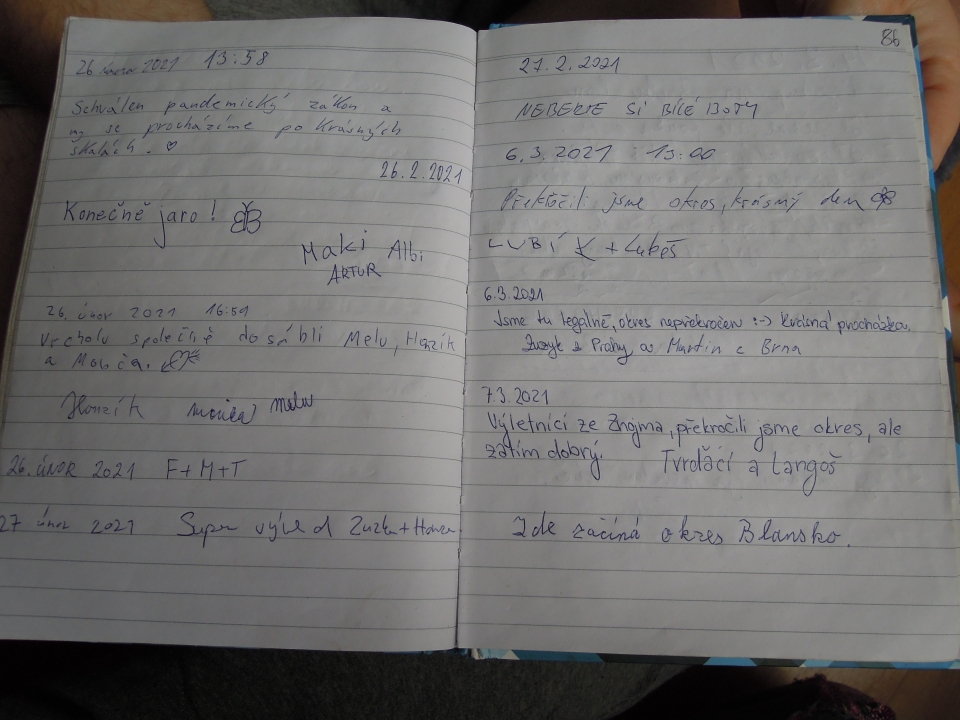 26 února 2021 13:58
Schválen pandemický zákon a
my se procházíme po Krásných
skalách. ♡
26.2.2021
Konečně jaro!
Maki Albi
ARTUR
26. únor 2021 16:59
Vrcholu společně dosáhli Melu, Honzík
a Monča.
Honzík Monika melu
26. ÚNOR 2021 F+M+T
27 únor 2021 Super výled Zuzka+Honza
86
27.2.2021
NEBERTE SI BÍLÉ BOTY
6.3.2021 13:00
Překročili jsme okres, krásný den
LUBÍK + Luboš
6.3.2021
Jsme tu legálně, okres nepřekročen :-) Krásná procházka.
z Prahy a Martin z Brna
7.3.2021
Výletníci ze Znojma, překročili jsme okres, ale
zatím dobrý. Tvrďáci a Langoš
Zde začíná okres Blansko.